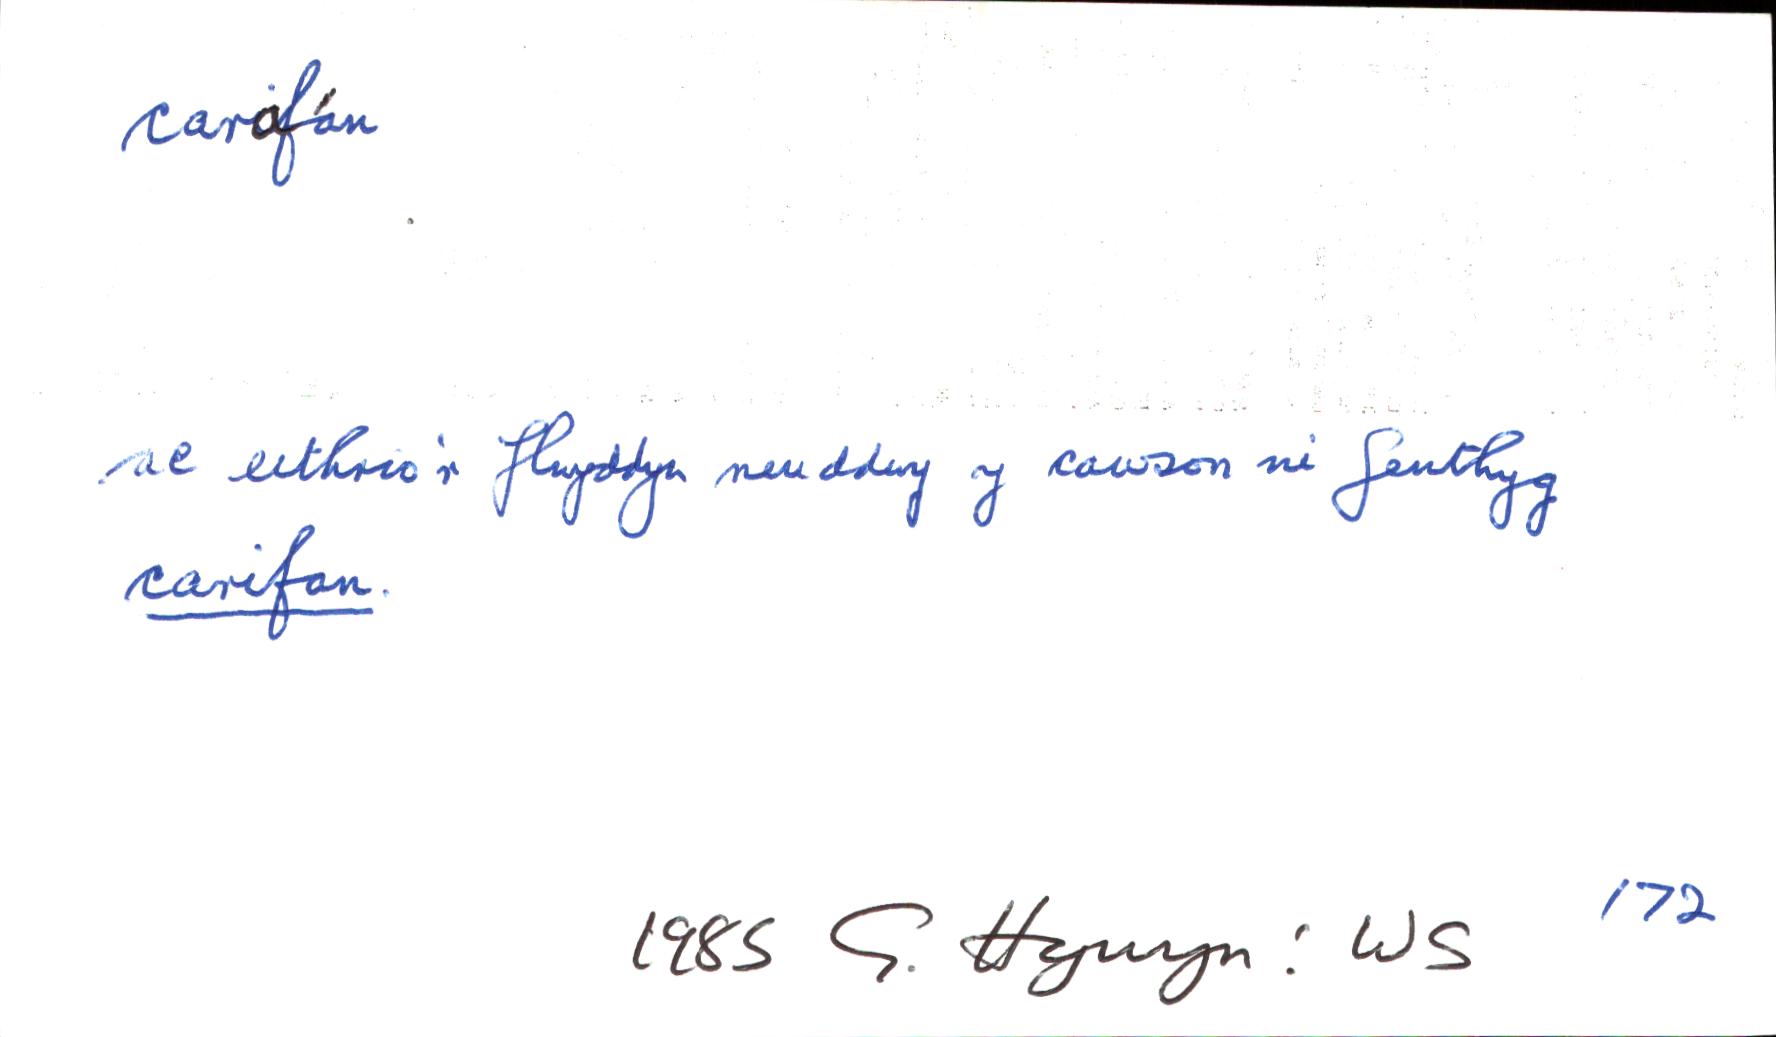 carafán
ac eithrio'r flwyddyn neu ddwy y cawson ni fenthyg
carifan.
172
1985 G. Hywyn: WS